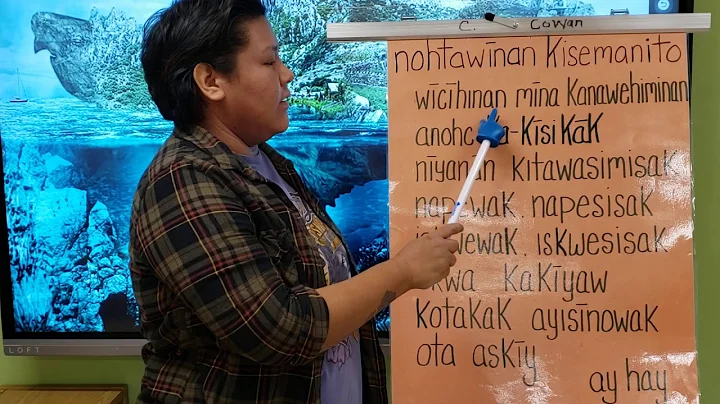 C. Cowan
nohtawīnan Kisemanito
wīcīhinan mīna Kanawehiminan
anohc -KīsiKāK
nīyanān kitawasimisak
napewak, napesisak
iskwewak, iskwesisak
ekwa kaKīyaw
KotaKaK ayisīnowak
ota asKīy
ay hay
LOFT